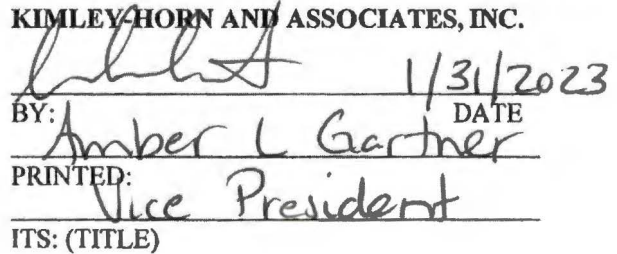 KIMLEY-HORN AND ASSOCIATES, INC.
1/31/2023
BY: DATE
Amber L Gartner
PRINTED:
Vice President
ITS: (TITLE)